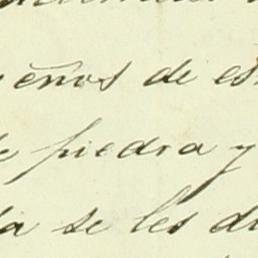 eños de es
e piedra y
da se les di